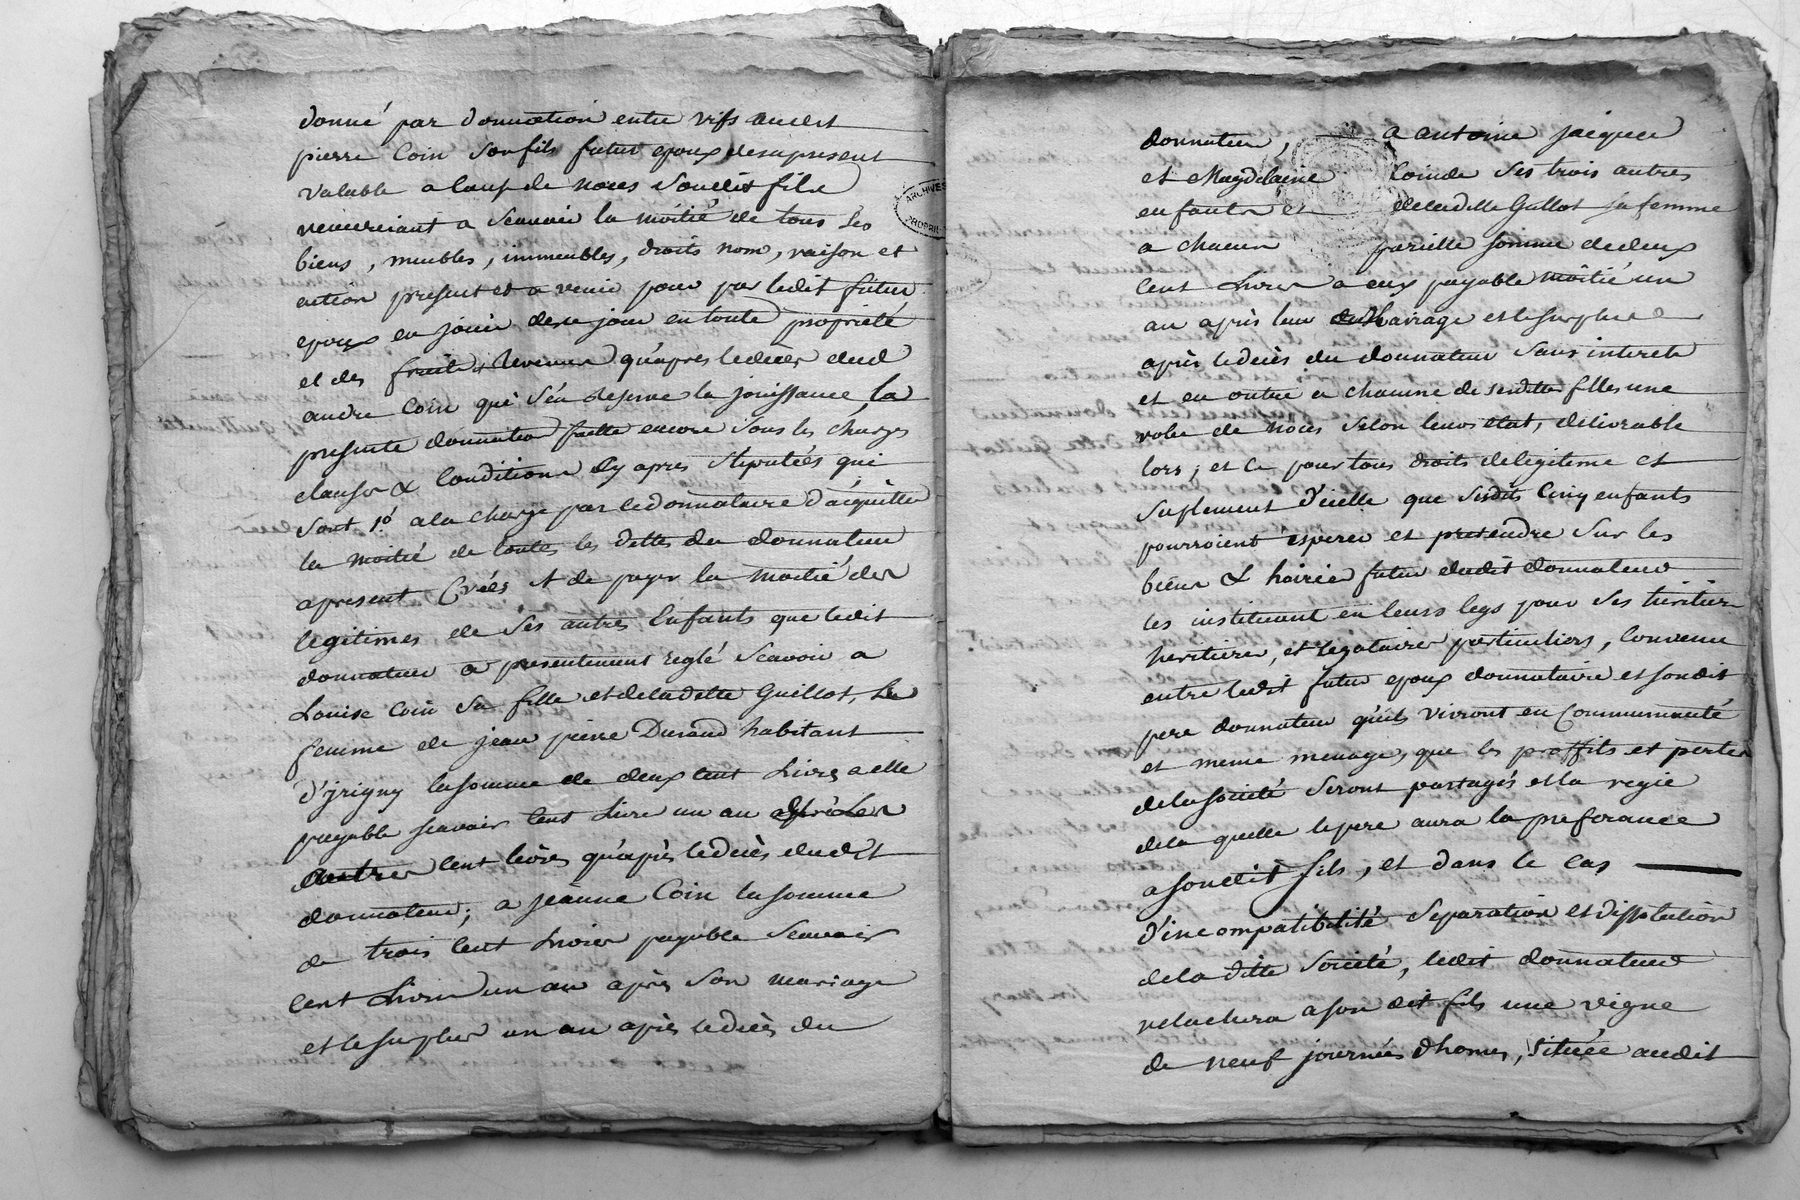 donné par donnation entre vifs audit
pierre Coin son fils futur epoux des a present
valable a l'aup de nous Soudit fils
remerciant a Scavoir la moitié de tous Ses
biens, meubles, immeubles, droits nom, raison et
action present et a venir pour par ledit futur
epoux en jouir des ce jour en toute propriété
et des fruits & Revenus qu'apres le deces dud
andre Coin qui S'en Reserve la jouissance, la
presente donnation faitte encore Sous les charges
clauses & Conditions Cy apres Stipulées qui
Sont 1o. a la charge par le donnataire d'acquitter
la moitié de toutes les dettes du donnateur
a present Créés et de payer la moitié des
legitimes de Ses autres Enfants que ledit
donnateur a presentement reglé Scavoir a
Louise Coin Sa fille et de la ditte Guillot,
femme de jean pierre Durand habitant
d'jrigny la somme de deux Cent Livres a elle
payable Scavoir Cent Livre un an après les
autres Cent livres qu'après le decès dudit
donnateur; a jeanne Coin la somme
de trois Cent Livres payable Scavoir
Cent Livres un an après Son mariage
et le surplus un an après le decès du
ARCHIVES
donnateur, a antoine jacques
et Magdelaine Coin de Ses trois autres
enfants et de laditte Guillot Sa femme
a chacun pareille Somme de deux
Cent Livres a eux payable moitié un
an après leur Mairage et le surplus
après le decès du donnateur Sans interets
et en outre a chacune de Sesdittes filles une
robe de noces Selon leurs etat, delivrable
lors; et Ce pour tous droits de legitime et
Suplement d'icelle que Sesdits Cinq enfants
pourroient esperer et pretendre Sur les
biens & hoirie futur dudit donnateur
les instituant en leurs legs pour Ses
heritiers, et legataires particuliers, Convenu
entre ledit futur epoux donnataire et Son dit
pere donnateur qu'ils vivront en Communauté
et meme menage, que les proffits et pertes
de la Societé Seront partagés et la regie
de la quelle le pere aura la preferance
a Son dit fils, et dans le cas
d'incompatibilité Separation et dissolution
de la ditte Societé, ledit donnateur
relachera a Son dit fils une vigne
de neuf journées d'homes, Située audit